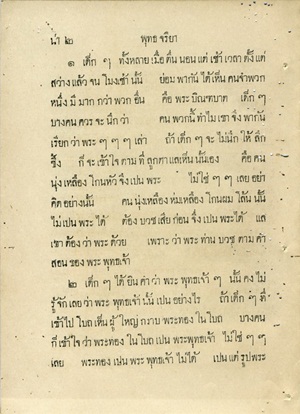 น่า ๒ พุทธ จริยา
๑ เด็ก ๆ ทั้งหลาย เมื่อ ตื่น นอน แต่ เช้า เวลา ตั้ง แต่
สว่าง แล้ว จน โมง เช้า นั้น ย่อม พา กัน ได้ เห็น คน จำพวก
หนึ่ง มี มาก กว่า พวก อื่น คือ พระ บิณฑบาต เด็ก ๆ
บาง คน ควร จะ นึก ว่า คน พวก นี้ ทำ ไม เขา จึง พา กัน
เรียก ว่า พระ ๆ ๆ ๆ เล่า ถ้า เด็ก ๆ จะ ไม่ นึก ให้ ลึก
ซึ้ง ก็ จะ เข้า ใจ ตาม ที่ ลูก ตา แล เห็น นั้น เอง คือ คน
นุ่ง เหลือง โกน หัว จึง เปน พระ ไม่ ใช่ ๆ ๆ เลย อย่า
คิด อย่าง นั้น คน นุ่ง เหลือง ห่ม เหลือง โกน ผม โล้น นั้น
ไม่ เปน พระ ได้ ต้อง บวช เสีย ก่อน จึง เปน พระ ได้ แล
เขา ต้อง ว่า พระ ด้วย เพราะ ว่า พระ ท่าน บวช ตาม คำ
สอน ของ พระ พุทธ เจ้า
๒ เด็ก ๆ ได้ ยิน คำ ว่า พระ พุทธ เจ้า ๆ นั้น คง ไม่
รู้ จัก เลย ว่า พระ พุทธ เจ้า นั้น เปน อย่าง ไร ถ้า เด็ก ๆ ที่
เข้า ไป ใน โบถ เห็น ผู้ ใหญ่ กราบ พระ ทอง ใน โบถ บาง คน
ก็ เข้า ใจ ว่า พระ ทอง ใน โบถ เปน พระ พุทธ เจ้า ไม่ ใช่ ๆ
เลย พระ ทอง เปน พระ พุทธ เจ้า ไม่ ได้ เปน แต่ รูป พระ